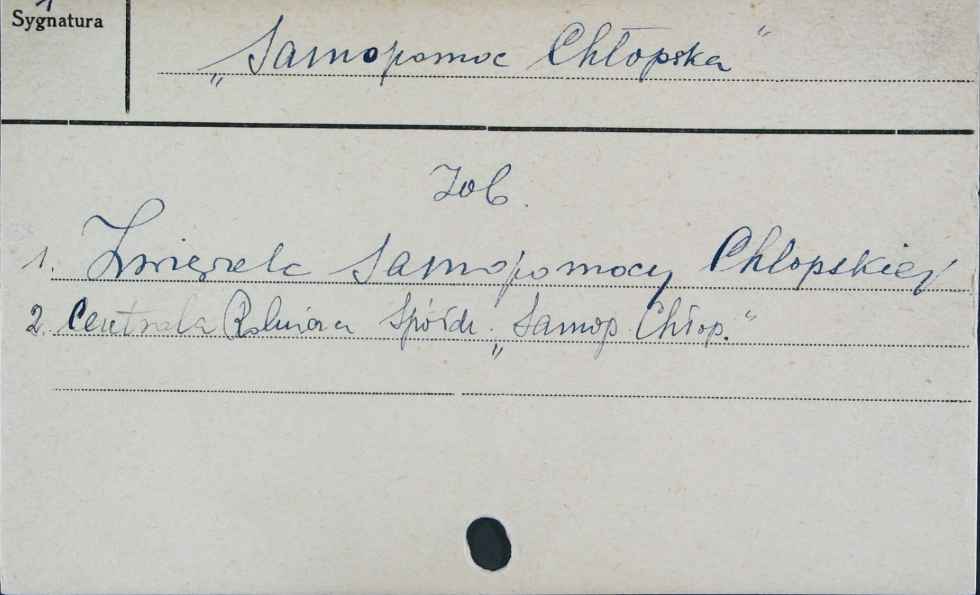 Sygnatura
„Samopomoc Chłopska"
Zob.
1. Związek Samopomocy Chłopskiej
2. Centrala Rolnicza Spółdz. „Samop. Chłop."